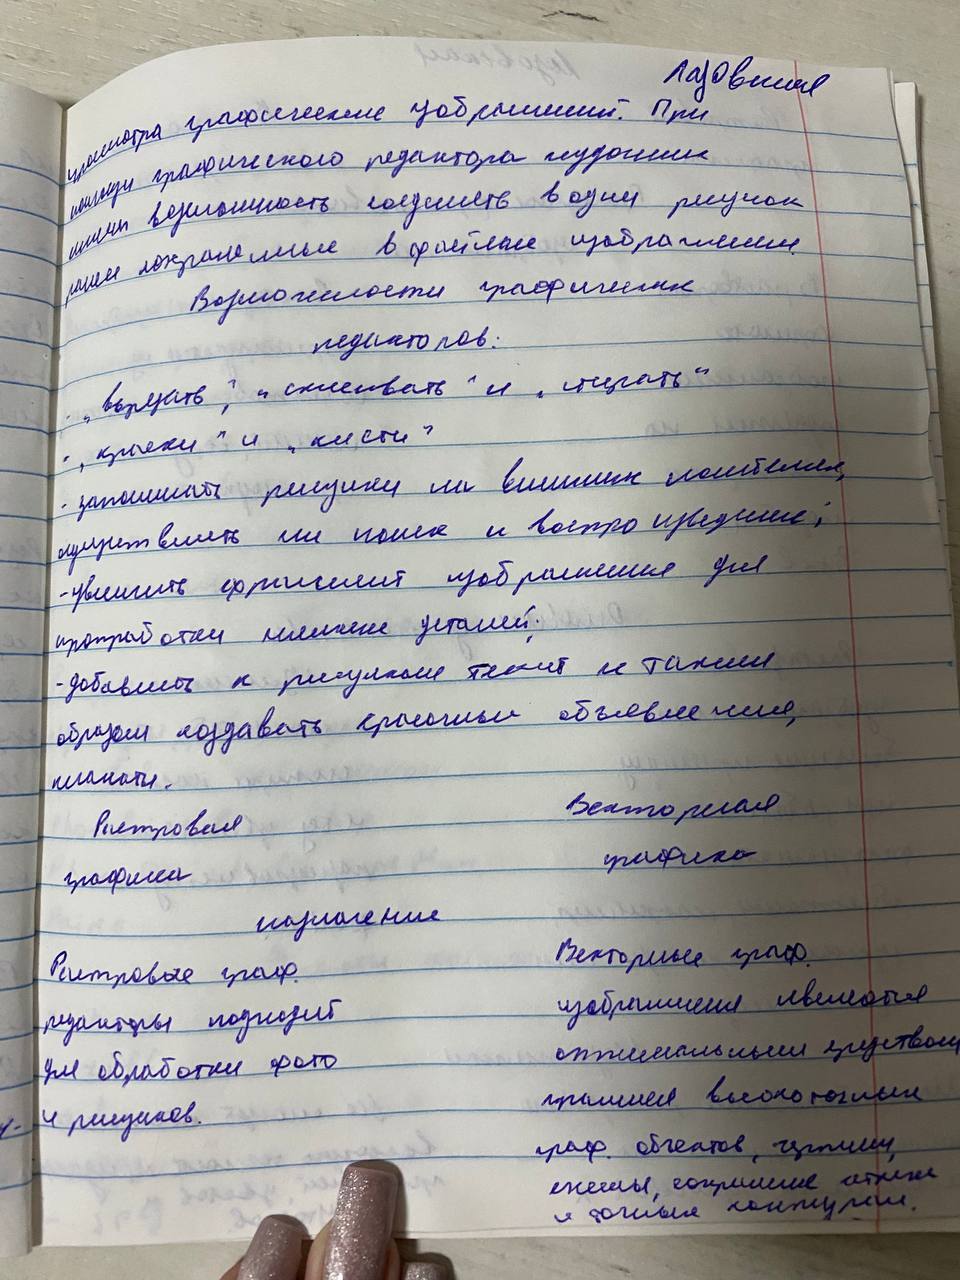 просмотра графические изображений. При
помощи графического редактора художник
имеет возможность соединять в один рисунок
ранее сохраненные в файлах изображения.
Возможности графических
редакторов:
- „вырезать", „склеивать" и „стирать"
- „краски" и „кисти"
- запоминать рисунки на внешних носителях,
осуществлять их поиск и воспроизведение;
- увеличить фрагмент изображения для
проработки мелких деталей;
- добавлять к рисункам текст и таким
образом создавать красочные объявления,
плакаты.
Растровая Векторная
графика графика
назначение
Растровые граф.
редакторы подходят
для обработки фото
и рисунков.
Векторные граф.
изображения являются
оптимальным средством
хранения высокоточных
граф. объектов, чертежи,
схемы, сохранение четких
и точных контуров.